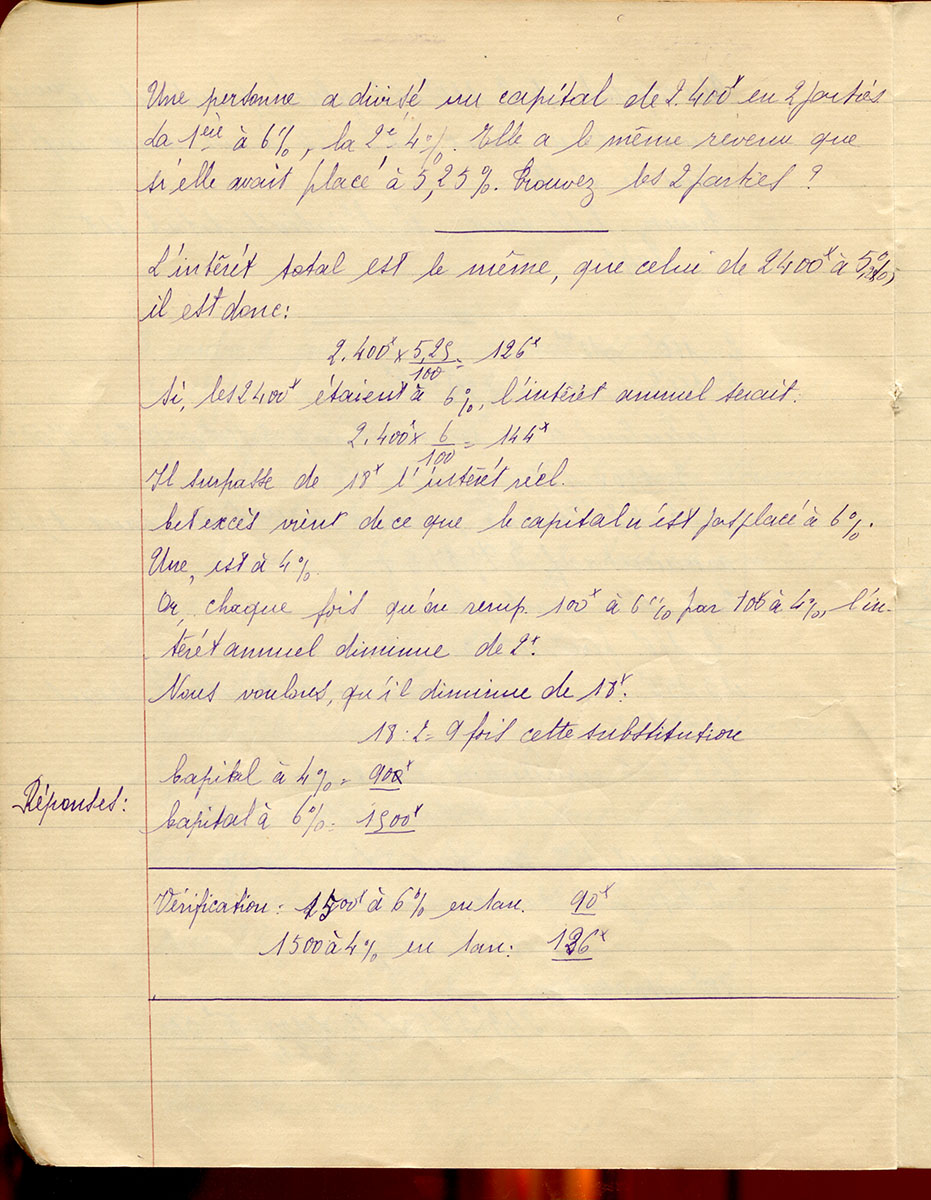 Une personne a divisé un capital de 2.400ᶠ en 2 parties
La 1ère à 6%, la 2e 4%. Elle a le même revenu que
si elle avait placé à 5,25%. Trouvez les 2 parties ?
L'intérêt total est le même, que celui de 2400ᶠ à 5,25%,
il est donc:
2.400ᶠ × 5,25/100 = 126ᶠ
Si, les 2400ᶠ étaient à 6%, l'intérêt annuel serait:
2.400ᶠ × 6/100 = 144ᶠ
Il surpasse de 18ᶠ l'intérêt réel.
Cet excès vient de ce que le capital n'est pas placé à 6%.
Une, est à 4%.
Or, chaque fois qu'on remp. 100ᶠ à 6% par 100 à 4%, l'in-
térêt annuel diminue de 2ᶠ.
Nous voulons, qu'il diminue de 18ᶠ:
18 : 2 = 9 fois cette substitution
Capital à 4% = 900ᶠ
Réponses:
Capital à 6% = 1500ᶠ
Vérification: 1500ᶠ à 6% en 1 an. 90ᶠ
1500 à 4% en 1 an: 136ᶠ